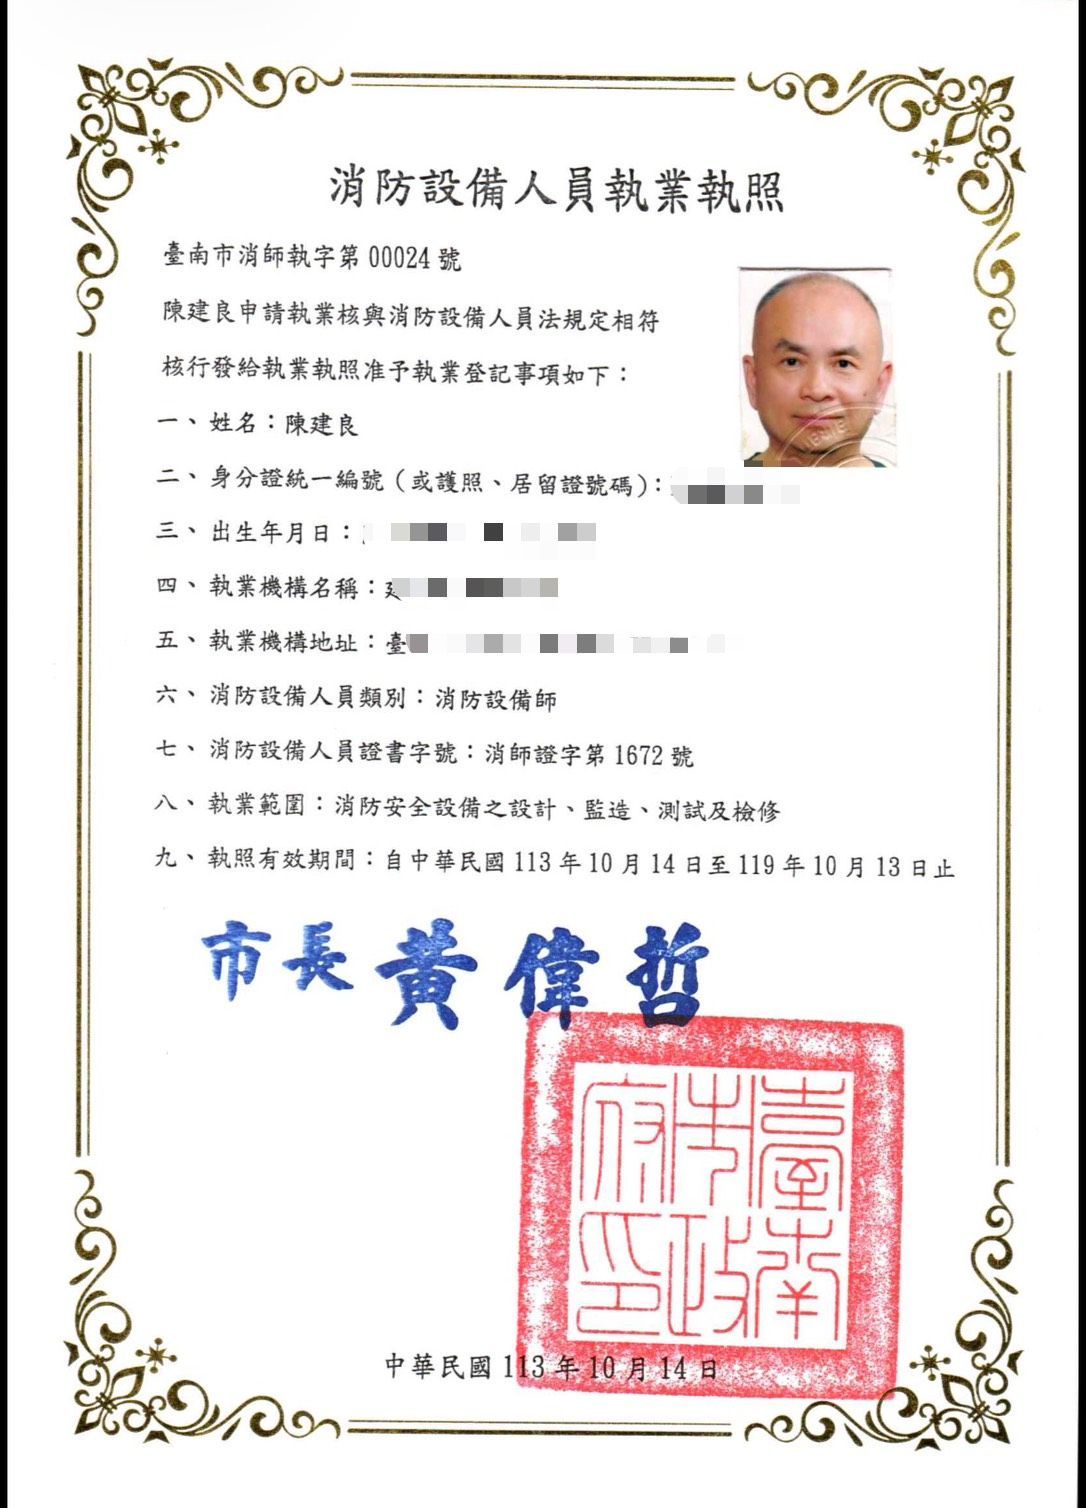 消防設備人員執業執照
臺南市消師執字第 00024 號
陳建良申請執業核與消防設備人員法規定相符
核行發給執業執照准予執業登記事項如下：
一、姓名：陳建良
二、身分證統一編號（或護照、居留證號碼）：
三、出生年月日：
四、執業機構名稱：
五、執業機構地址：臺
六、消防設備人員類別：消防設備師
七、消防設備人員證書字號：消師證字第 1672 號
八、執業範圍：消防安全設備之設計、監造、測試及檢修
九、執照有效期間：自中華民國 113 年 10 月 14 日至 119 年 10 月 13 日止
市長 黃偉哲
臺南
市政
府印
中華民國 113 年 10 月 14 日